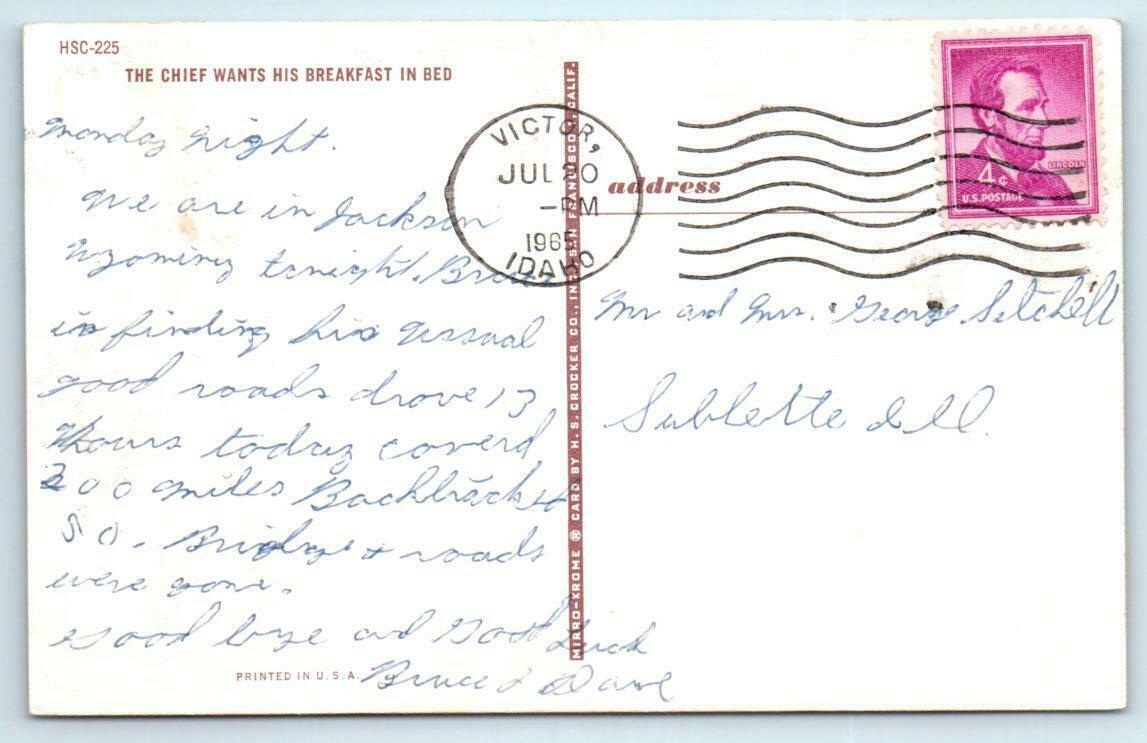 HSC-225
THE CHIEF WANTS HIS BREAKFAST IN BED
Monday night.
We are in Jackson
Wyoming tonight. Bruce
is finding his ussual
good roads drove 13
Hours today coverd
300 miles Backtrackt
80. Bridges + roads
were gone.
Good bye and Good Luck
Bruce & Dave
PRINTED IN U.S.A.
MIRRO-KROME ® CARD BY H. S. CROCKER CO., INC., SAN FRANCISCO, CALIF.
VICTOR,
JUL 20
-PM
1965
IDAHO
address
4¢
LINCOLN
U.S. POSTAGE
Mr and Mrs. George Setchell
Sublette Ill.